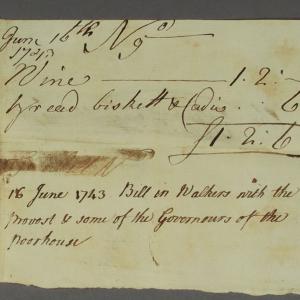 June 16th No 9
1743
Wine 1:2:
bread biskett & 6
£1:2:6
16 June 1743 Bill in Walkers with the
provost & some of the Governours of the
poorhouse